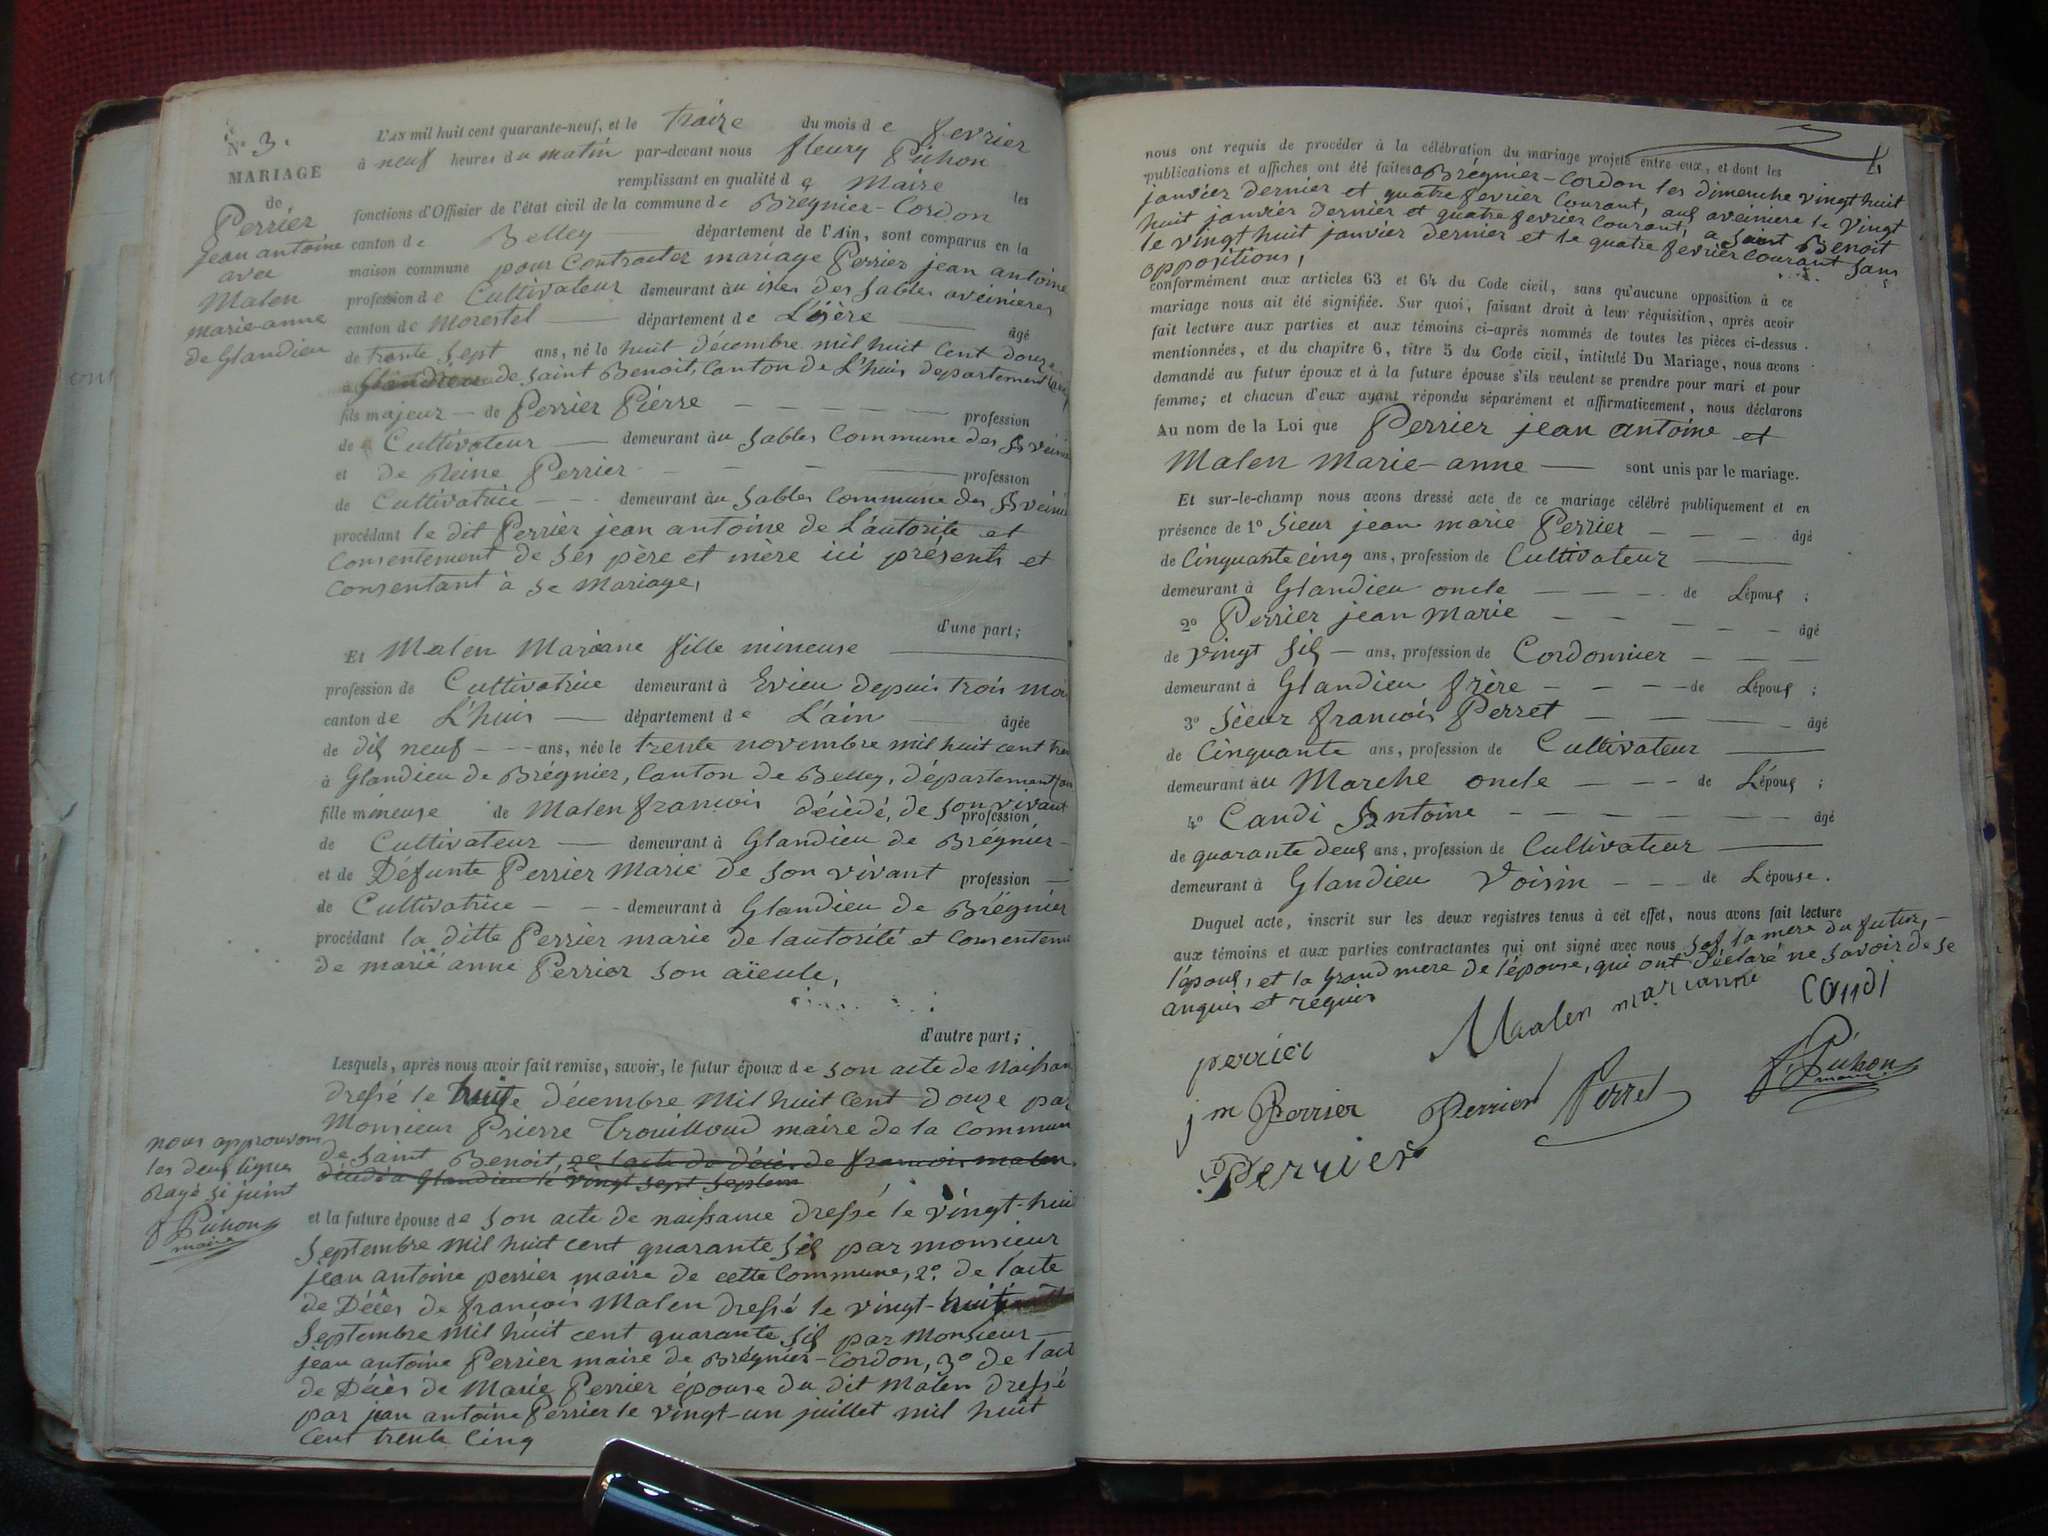 N° 3.
MARIAGE
de
Perrier
jean antoine
avec
Malen
marie-anne
de Glandieu
L'AN mil huit cent quarante-neuf, et le traize du mois de fevrier
à neuf heures du matin par-devant nous fleury Pichon
remplissant en qualité de Maire les
fonctions d'Officier de l'état civil de la commune de Bregnier-Cordon
canton de Belley département de l'Ain, sont comparus en la
maison commune pour Contracter mariage Perrier jean antoine
profession de Cultivateur demeurant au isles des Sables aveinieres
canton de Morestel département de L'isère âgé
de trente Sept ans, né le huit décembre mil huit Cent douze
à Glandieu de Saint Benoit, Canton de L'huis departement
fils majeur de Perrier Pierre profession
de Cultivateur demeurant au Sables Commune des Aveini
et de Reine Perrier profession
de Cultivatrice demeurant au Sables Commune des Aveini
procédant le dit Perrier jean antoine de L'autorite et
Consentement de Ses père et mère ici présents et
Consentant à Se Mariage,
d'une part;
Et Malen Mariane fille mineuse
profession de Cultivatrice demeurant à Evieu depuis trois moi
canton de L'huis département de L'ain âgée
de dix neuf ans, née le trente novembre mil huit cent tren
à Glandieu de Brégnier, Canton de Belley, département
fille mineuse de Malen francois décédé, de Son vivant
profession
de Cultivateur demeurant à Glandieu de Brégnier
et de Défunte Perrier Marie de Son vivant profession
de Cultivatrice demeurant à Glandieu de Brégnier
procédant la ditte Perrier marie de lautorité et Consenteme
de marie anne Perrier Son aïeule,
d'autre part;
Lesquels, après nous avoir fait remise, savoir, le futur époux de Son acte de Naissan
dressé le huit décembre Mil huit Cent douze par
Monsieur Prierre Trouilloud maire de la Commun
de Saint Benoit, 2° lacte de décès de francois malen
décédé a Glandieu le vingt Sept Septem
nous approuvons
les deux lignes
Rayé Si joint
f Pichon
maire
et la future épouse de Son acte de naissance dressé le vingt-hui
Septembre Mil huit cent quarante Six par monsieur
jean antoine perrier maire de cette Commune, 2° de lacte
de Décès de francois Malen dressé le vingt-huit
Septembre mil huit cent quarante Six par Monsieur
jean antoine Perrier maire de Brégnier-Cordon, 3° de lact
de Décès de Marie Perrier épouse du dit Malen dressé
par jean antoine Perrier le vingt-un juillet mil huit
Cent trente Cinq
nous ont requis de procéder à la célébration du mariage projeté entre eux, et dont les
publications et affiches ont été faites a Brégnier-Cordon les dimenche vingt huit
janvier dernier et quatre fevrier Courant, aux aveiniere le Vingt
huit janvier dernier et quatre fevrier Courant, a Saint Benoit
le vingt huit janvier dernier et le quatre fevrier Courant Sans
oppositions,
conformément aux articles 63 et 64 du Code civil, sans qu'aucune opposition à ce
mariage nous ait été signifiée. Sur quoi, faisant droit à leur réquisition, après avoir
fait lecture aux parties et aux témoins ci-après nommés de toutes les pièces ci-dessus
mentionnées, et du chapitre 6, titre 5 du Code civil, intitulé Du Mariage, nous avons
demandé au futur époux et à la future épouse s'ils veulent se prendre pour mari et pour
femme; et chacun d'eux ayant répondu séparément et affirmativement, nous déclarons
Au nom de la Loi que Perrier jean antoine et
Malen Marie-anne sont unis par le mariage.
Et sur-le-champ nous avons dressé acte de ce mariage célébré publiquement et en
présence de 1° Sieur jean marie Perrier âgé
de Cinquante cinq ans, profession de Cultivateur
demeurant à Glandieu oncle de L'époux ;
2° Perrier jean Marie âgé
de vingt Six ans, profession de Cordonnier
demeurant à Glandieu frère de L'époux ;
3° Sieur francois Perret âgé
de Cinquante ans, profession de Cultivateur
demeurant au Marche oncle de L'époux ;
4° Candi Antoine âgé
de quarante deux ans, profession de Cultivateur
demeurant à Glandieu Voisin de L'épouse.
Duquel acte, inscrit sur les deux registres tenus à cet effet, nous avons fait lecture
aux témoins et aux parties contractantes qui ont signé avec nous Sof la mere du futur,
lépoux, et la Grand mere de lépouse, qui ont déclaré ne Savoir de Se
anquis et réquis
perrier Maalen marianne Candi
jm Perrier Perrier Perret f. Pichon
maire
Perrier